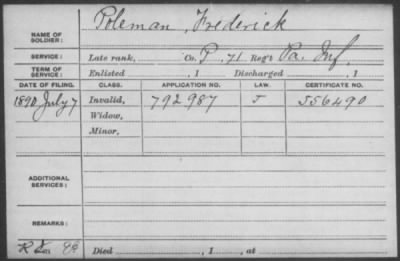 NAME OF SOLDIER: Poleman, Frederick
SERVICE: Late rank, Co. P, 71 Reg't Pa. Inf,
TERM OF SERVICE: Enlisted , 1 Discharged , 1
DATE OF FILING. CLASS. APPLICATION NO. LAW. CERTIFICATE NO.
1890 July 7 Invalid, 792987 J 556490
Widow,
Minor,
ADDITIONAL SERVICES:
REMARKS:
Died , 1 , at